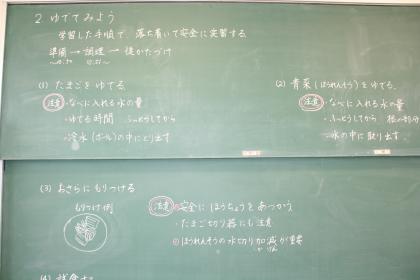 2. ゆでてみよう
学習した手順で、落ち着いて安全に実習する
準備 → 調理 → 後かたづけ
(1) たまごをゆでる
注意 ・なべに入れる水の量
・ゆでる時間 ふっとうしてから
・冷水(ボール)の中にとり出す
(2) 青菜(ほうれんそう)をゆでる
注意 ・なべに入れる水の量
・ふっとうしてから 根の部分
・水の中に取り出す
(3) おさらにもりつける
もりつけ例
注意 ・安全にほうちょうをあつかう
・たまご切り器にも注意
◎ほうれんそうの水切り加減が重要
かげん